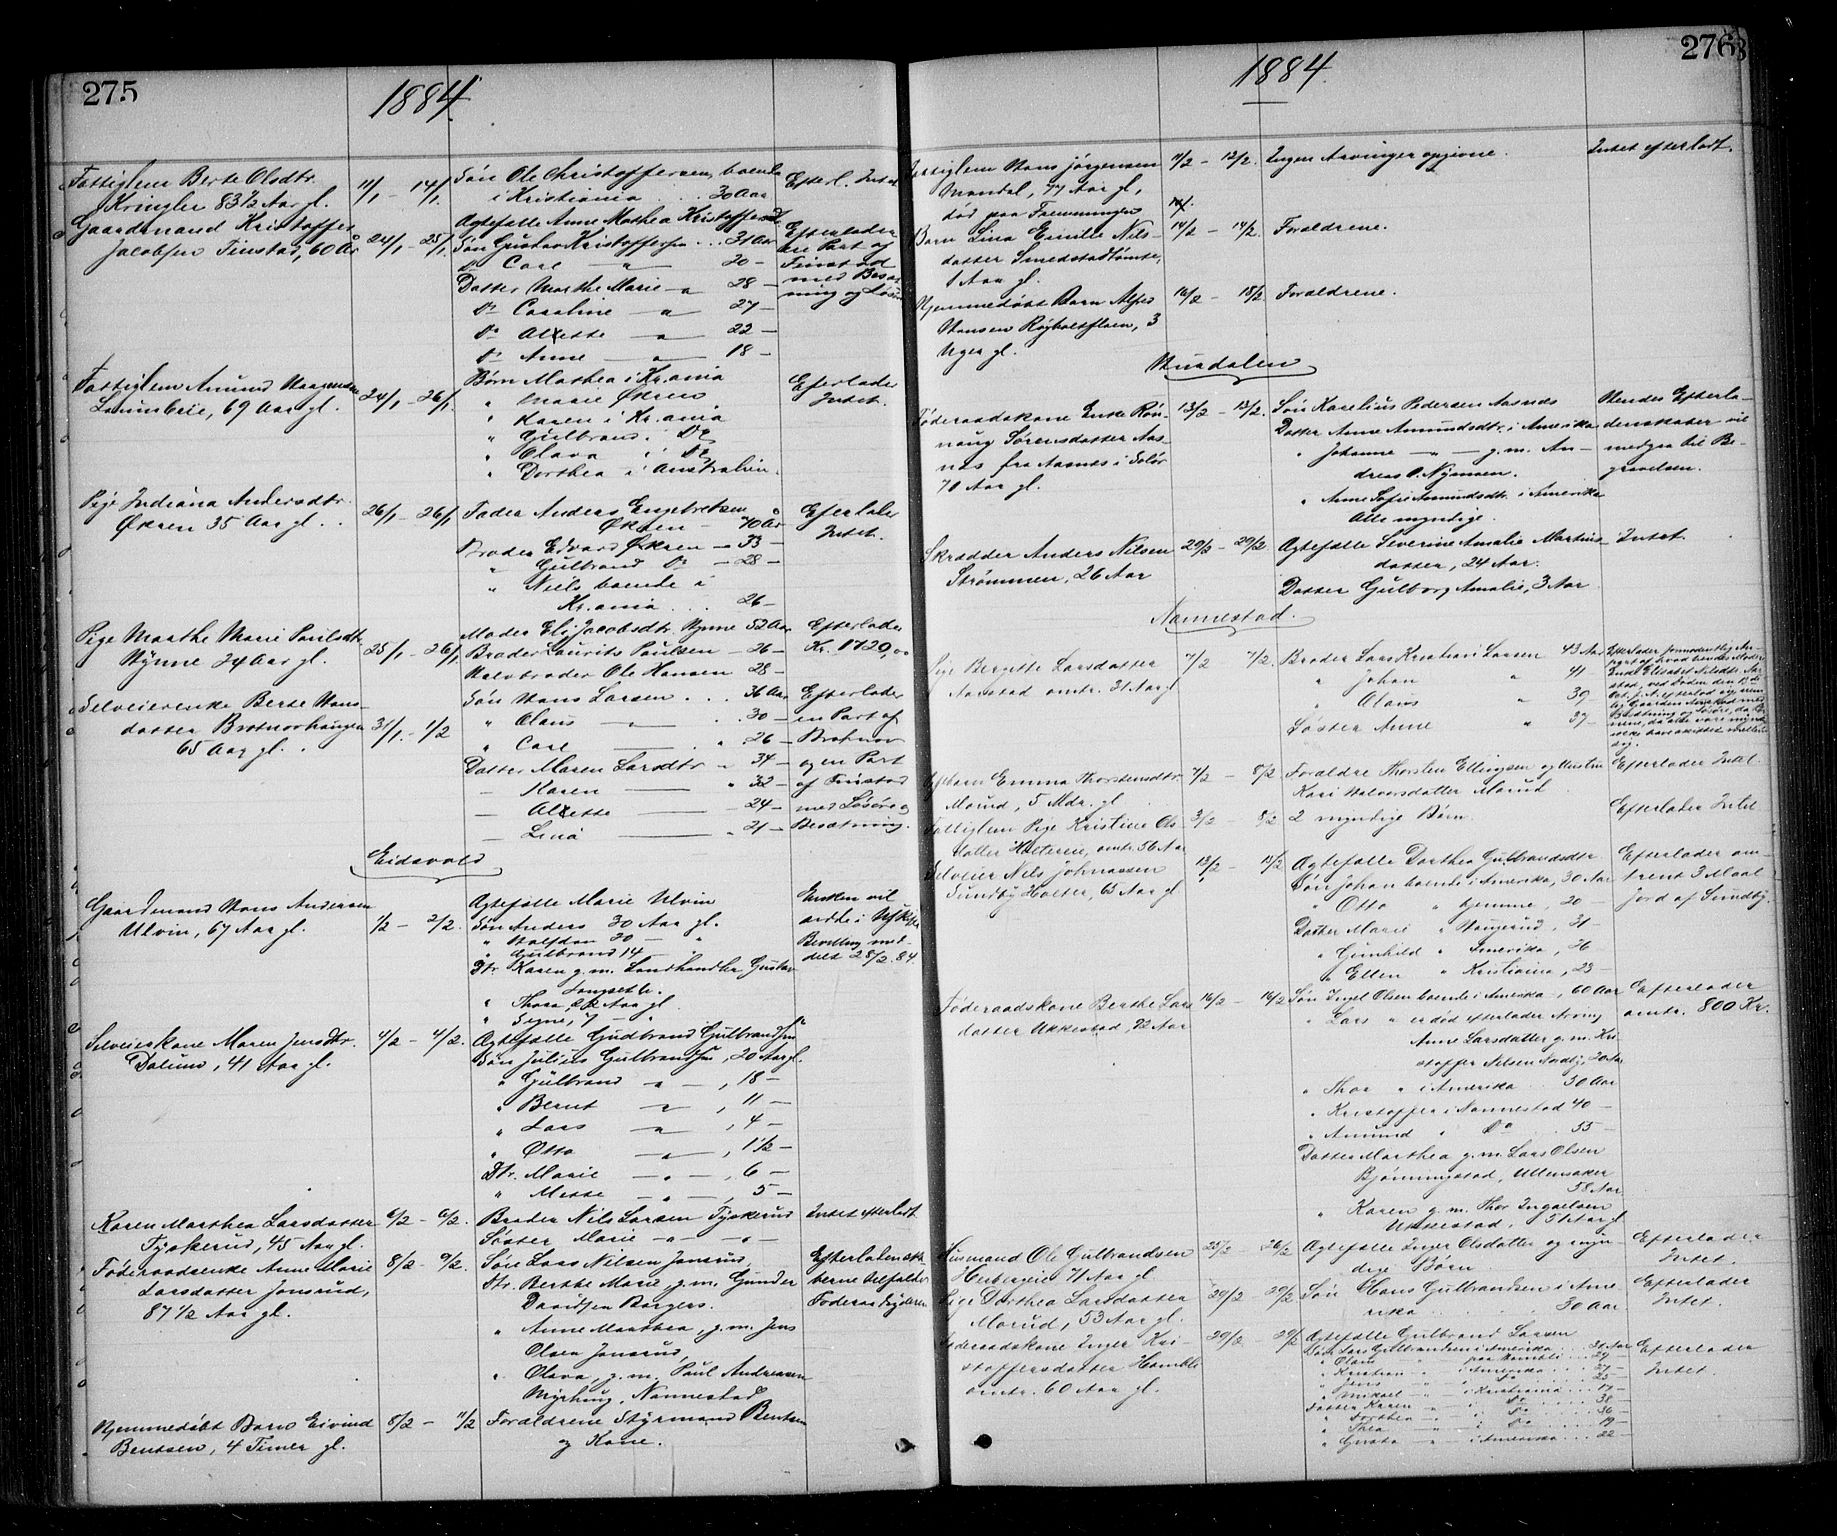 275
1884.
Fattiglem Berte Olsdtr.
Kringler 83½ Aar gl.
11/1 – 14/1.
Søn Ole Christoffersen, boende
i Kristiania . . 30 Aar
Efterl. Intet
Gaardmand Kristoffer
Jacobsen Finstad, 60 År
24/1 – 25/1.
Agtefælle Anne Mathea Kristoffersd.
Søn Gustav Kristoffersen . . 31 Aar
Do Carl — " — 20 –
Datter Marthe Marie — " — 28 –
Do Caroline — " — 27 –
Do Alette — " — 22 –
Do Anne — " — 18 –
Efterlader
en Part af
Finstad
med Besæt
ning og Løsøre
Fattiglem Amund Haagensen
69 Aar gl.
24/1 – 26/1.
Børn Mathea i Kr.ania
" Marie Økren
" Karen i Kr.ania
" Gulbrand i Do
" Olava i Do
" Dorthea i Australien.
Efterlader
Intet.
Pige Indiana Andersdtr.
Økren 35 Aar gl. .
26/1 – 26/1
Fader Anders Engebretsen
Økren – 70 År
Broder Edvard Økren — 33 –
" Gulbrand Do — 28 –
" Niels boende i
Kr.ania . . . 26 –
Efterlader
Intet.
Pige Marthe Marie Paulsdtr.
Hynne 24 Aar gl.
25/1 – 26/1
Moder Eli Jacobsdtr. Hynne 52 Aar
Broder Laurits Paulsen — 26 –
Halvbroder Ole Hansen 28 –
Efterlader
Kr. 1720,00
Selveierenke Berte Hans-
datter Brotnorhaugen
65 Aar gl. .
31/1. – 1/2
Søn Hans Larsen . . . 36 Aar
" Olaus — " . . 30 –
" Carl — " . 26 –
Datter Maren Larsdtr – 34 –
– Karen — " 32 –
– Alette — – 24 –
– Lina — " 21 –
Efterlader
en Part af
Brotnor
og en Part
af Finstad
med Løsøre og
Besætning.
Eidsvold
Gaardmand Hans Andersen
Ulvin, 67 Aar gl.
1/2 – 2/2.
Agtefælle Marie Ulvin
Søn Anders 30 Aar gl.
" Halfdan 20 – "
" Gulbrand 14 –
Dtr. Karen g.m. Landhandler Gustav
Langseth.
" Thora, 22 Aar gl.
" Signe, 7 – "
Enken vil
sidde i Uskiftet
Bevilling med-
delt 28/2. 84.
Selveierkone Maren Jensdtr.
Dalum, 41 Aar gl.
4/2 – 4/2.
Agtefælle Gudbrand Gulbrandsen
Søn Julius Gulbrandsen, 20 Aar gl.
" Gulbrand — " — , 18 –
" Bernt — " — , 11 –
" Lars — " — , 4 –
" Otto — " — , 1½ –
Dtr. Marie — " — , 6 –
" Mette — " — , 5 –
Karen Marthea Larsdatter
Tyskerud, 45 Aar gl.
6/2 – 6/2.
Broder Nils Larsen Tyskerud
Søster Marie — " — " —
Intet efterladt
Føderaadsenke Anne Marie
Larsdatter Jonsrud,
87½ Aar gl.
8/2 – 9/2.
Søn Lars Nilsen Jonsrud,
Dtr. Berthe Marie, g.m. Gunder
Davidsen Borgers.
" Anne Marthea, g.m. Jens
Olsen Jonsrud,
" Olava, g.m. Paul Andreasen
Myrhug, Nannestad
Hjemmedøbt Barn Eivind
Bentsen, 4 Timer gl.
8/2 – 11/2
Forældrene Styrmand Bentsen
og Kone.
276
1884.
Fattiglem Hans Jørgensen
Mandal, 77 Aar gl,
død paa Fremmingen
11/2 – 12/2.
Ingen Arvinger opgivne.
Intet efterladt.
Barn Lina Emilie Nils-
datter Smedstadtomte,
1 Aar gl.
14/2 – 14/2.
Forældrene.
Hjemmedøbt Barn Alfred
Hansen Røgholtfloen, 3
Uger gl.
16/2 – 18/2
Forældrene.
Hurdalen
Føderaadskone Enke Røn-
naug Sørensdatter Aas-
næs fra Aasnes i Solør
70 Aar gl.
13/2 – 13/2.
Søn Karelius Pedersen Aasnæs
Datter Anne Amundsdtr. i Amerika
" Johanne — " — g.m. An-
dreas O. Nymoen.
" Anne Sofie Amundsdtr. i Amerika
Alle myndige.
Hendes Efterla-
denskaber vil
medgaa til Be-
gravelsen.
Skrædder Anders Nilsen
Strømmen, 26 Aar
29/2 – 29/2
Agtefælle Severine Amalie Martins-
datter, 24 Aar.
Datter Gulborg Amalie, 3 Aar
Intet.
Nannestad.
Pige Bergitte Larsdatter
Aarstad omtr. 31 Aar gl
7/2 7/2.
Broder Lars Kristian Larsen 43 Aar
" Johan " 41 –
" Olaus " 39 –
Søster Anne " 37 –
Efterlader formodentlig Ar-
part af hvad hendes Moder
Enke Elisabet Nilsdtr. Aar-
stad ved Døden den
Efterlod
Gaarden Aarstad med
Besætning og Løsøre,
Pigebarn Emma Thorstensdtr.
Morud, 5 Mdr. gl.
7/2 – 8/2
Forældre Thorsten Ellingsen og Hustru
Kari Halvorsdatter Morud
Efterlader Intet
Fattiglem Pige Kristine Ols-
datter Holteren, omtr. 56 Aar
3/2 – 8/2
2 myndige Børn
Efterlader Intet
Selveier Nils Johnassen
Sundby Holter, 65 Aar gl.
13/2 – 13/2
Agtefælle Dorthea Gulbrandsdtr
Søn Johan boende i Amerika, 30 Aar
" Otto " hjemme, 20 –
Datter Marie " Haugerud, 31 –
" Gunhild " Amerika, 26 –
" Ellen " Kristiania, 23 –
Efterlader om-
trent 3 Maal
Jord af Sundby.
Føderaadskone Berthe Lars
datter Ukkestad, 92 Aar
16/2 – 16/2
Søn Ingel Olsen boende i Amerika, 60 Aar
" Lars " er død efterlader Arving
Anne Larsdatter g.m. Kri-
stoffer Nilsen Nordby, 20 Aar
" Thor " i Amerika . . 50 Aar
" Kristoffer i Nannestad 40 –
" Amund " Do . 55 –
Datter Marthea g.m. Lars Olsen
Bjønningstad, Ullensaker
58 Aar
" Karen g.m. Thor Ingvelsen
Ukkestad, 51 Aar gl
Efterlader
omtr. 800 Kr.
Husmand Ole Gulbrandsen
Herbergeie 71 Aar gl.
25/2 – 26/2
Agtefælle Inger Olsdatter og myn-
dige Børn
Efterlader
Intet.
Pige Dorthea Larsdatter
Morud, 53 Aar gl.
29/2 – 29/2
Søn Hans Gulbrandsen i Ame
rika . . . . 30 Aar
Efterlader
Intet.
Føderaadskone Inger Kri-
stoffersdatter Hambli
omtr. 60 Aar gl.
29/2 – 29/2
Agtefælle Gulbrand Larsen
Søn Lars Gulbrandsen i Amerika . . . 31 Aar
" Olaus " paa Hambli . . . 29 –
" Kristian " i Amerika . . . 27 –
" Jens " Do . . . 25 –
" Mikael — " — i Kristiania . . . 17 –
Datter Karen — " — i Do . . . 38 –
" Dorthea — " — i Do . . . 36 –
" Thea — " — i Do . . . 19 –
" Gusta — " — i Amerika . . . 22 –
Efterlader
Intet.